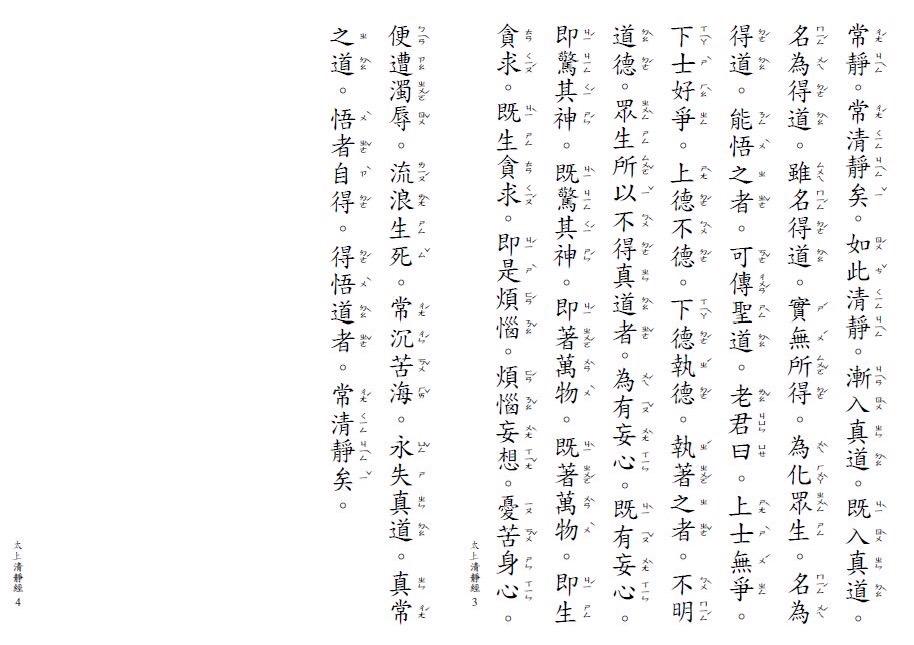 常靜。常清靜矣。如此清靜。漸入真道。既入真道。
名為得道。雖名得道。實無所得。為化眾生。名為
得道。能悟之者。可傳聖道。老君曰。上士無爭。
下士好爭。上德不德。下德執德。執著之者。不明
道德。眾生所以不得真道者。為有妄心。既有妄心。
即驚其神。既驚其神。即著萬物。既著萬物。即生
貪求。既生貪求。即是煩惱。煩惱妄想。憂苦身心。
太上清靜經 3
便遭濁辱。流浪生死。常沉苦海。永失真道。真常
之道。悟者自得。得悟道者。常清靜矣。
太上清靜經 4